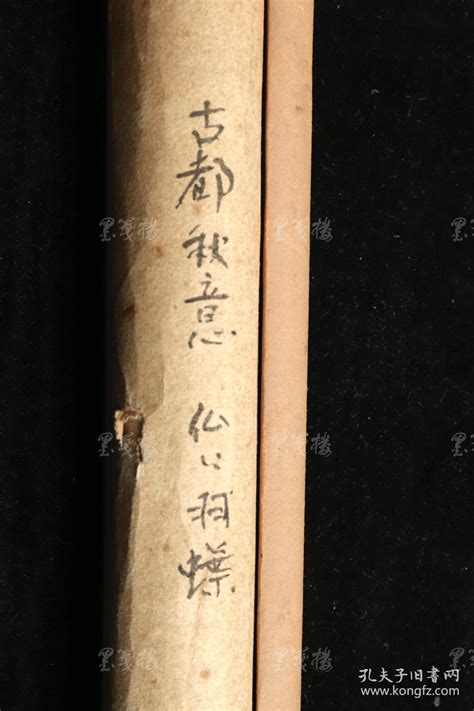 古都秋意 仙翁蝶
墨笺楼
墨笺楼
墨笺楼
墨笺楼
墨笺楼
墨笺楼
孔夫子旧书网
www.kongfz.com